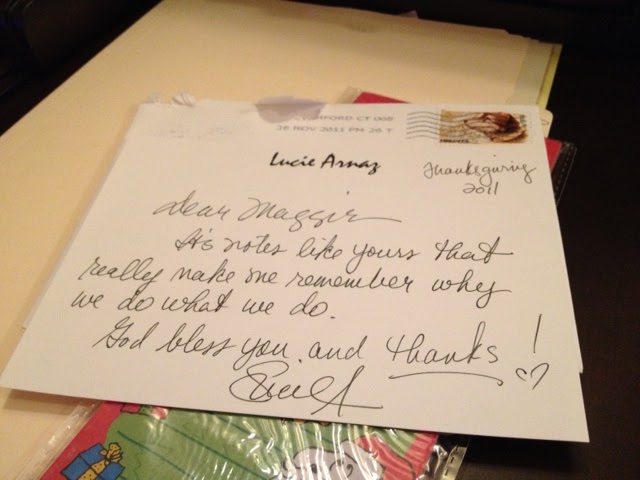 STAMFORD CT 068
28 NOV 2011 PM 26 T
Lucie Arnaz
Thanksgiving
2011
Dear Maggie
It's notes like yours that
really make me remember why
we do what we do.
God bless you. and thanks!